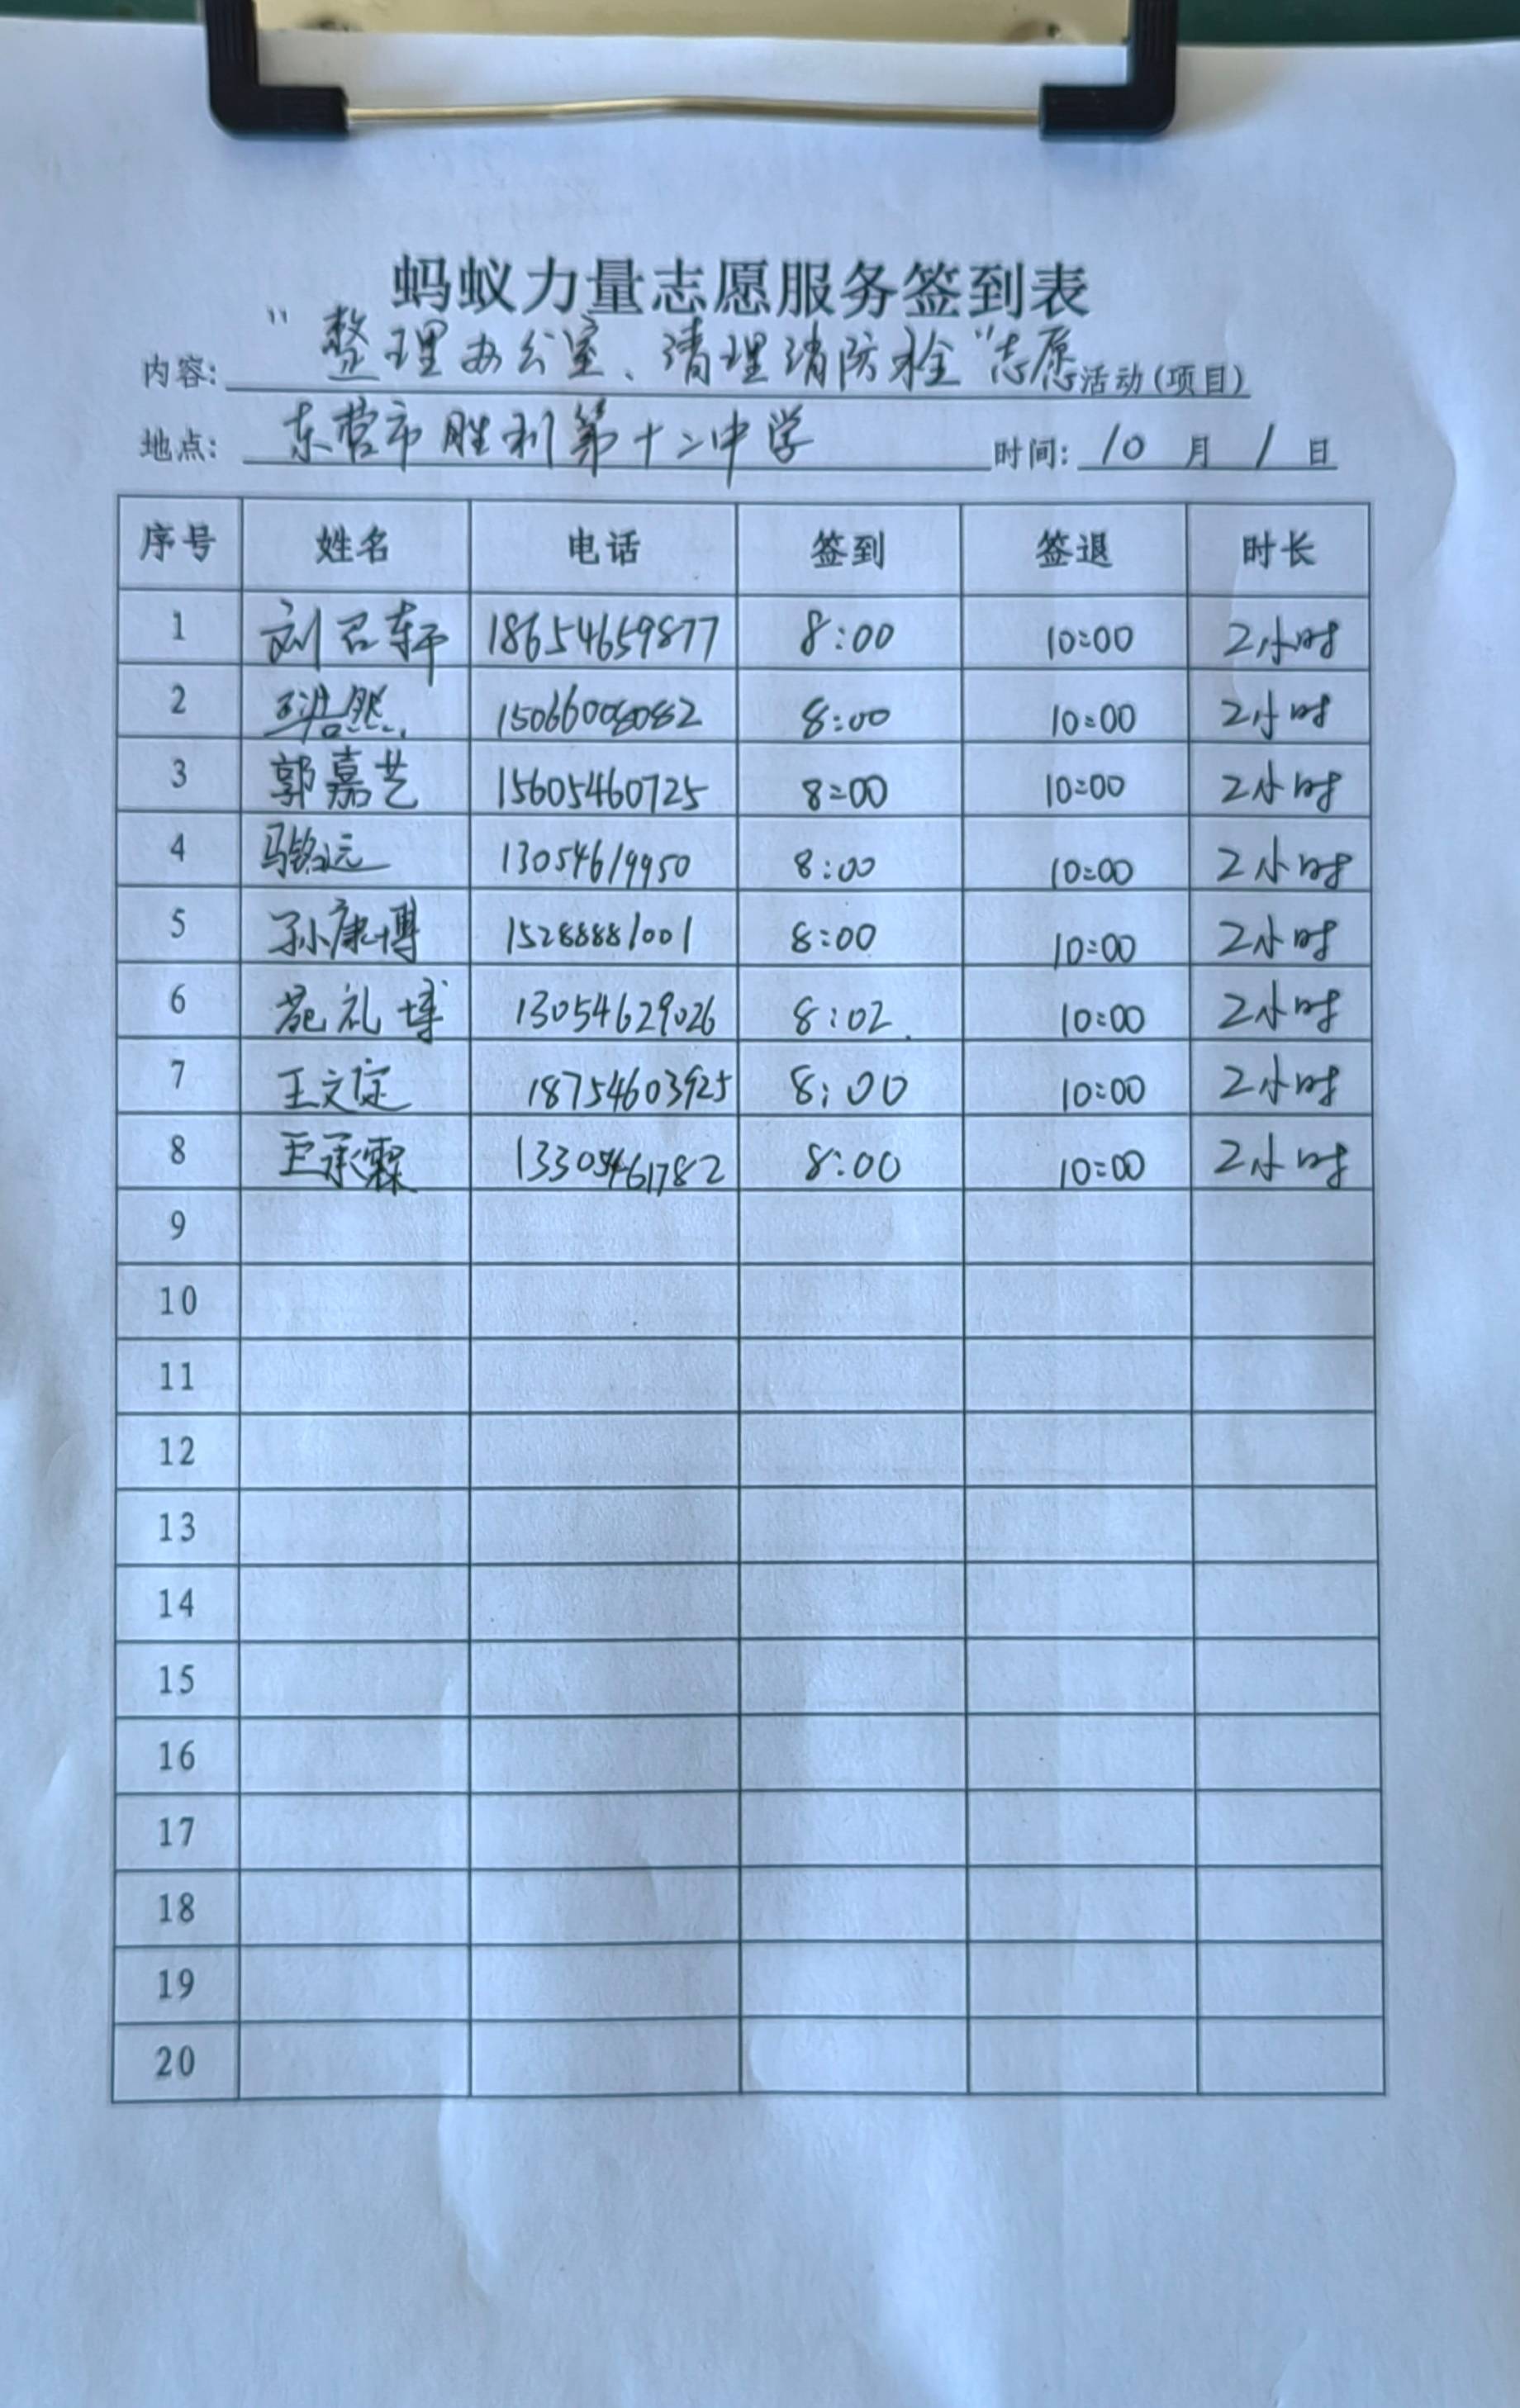 蚂蚁力量志愿服务签到表
内容: "整理办公室、清理消防栓"志愿活动(项目)
地点: 东营市胜利第十二中学 时间: 10 月 1 日
序号 姓名 电话 签到 签退 时长
1 刘召轩 18654659877 8:00 10:00 2小时
2 王浩然 15066008082 8:00 10:00 2小时
3 郭嘉艺 15605460725 8:00 10:00 2小时
4 马铭远 13054619950 8:00 10:00 2小时
5 孙康博 15288881001 8:00 10:00 2小时
6 礼博 13054629026 8:02 10:00 2小时
7 王文定 18754603925 8:00 10:00 2小时
8 王承霖 13305461782 8:00 10:00 2小时
9
10
11
12
13
14
15
16
17
18
19
20